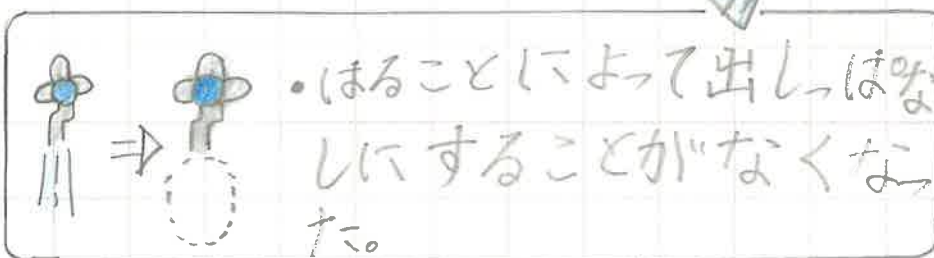 ・はることによって出しっぱな
しにすることがなくなっ
た。